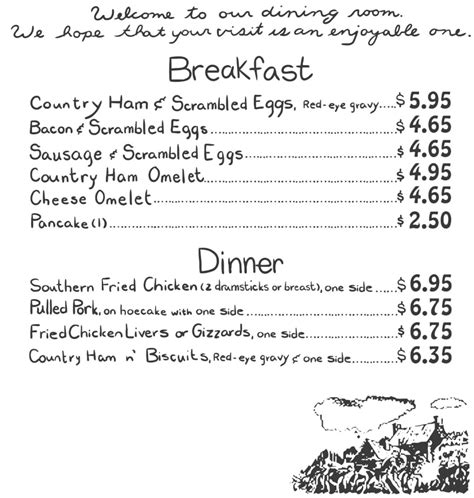 Welcome to our dining room.
We hope that your visit is an enjoyable one.
Breakfast
Country Ham & Scrambled Eggs, Red-eye gravy.....$ 5.95
Bacon & Scrambled Eggs..............................$ 4.65
Sausage & Scrambled Eggs.........................$ 4.65
Country Ham Omelet..................................$ 4.95
Cheese Omelet...........................................$ 4.65
Pancake (1)................................................$ 2.50
Dinner
Southern Fried Chicken (2 dramsticks or breast), one side .....$ 6.95
Pulled Pork, on hoecake with one side ...........................$ 6.75
Fried Chicken Livers or Gizzards, one side .....................$ 6.75
Country Ham n' Biscuits, Red-eye gravy & one side..........$ 6.35